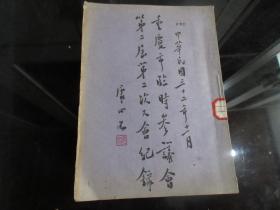 中華民國三十二年十一月
重慶市臨時參議會
第二屆第二次大會紀錄
康心如